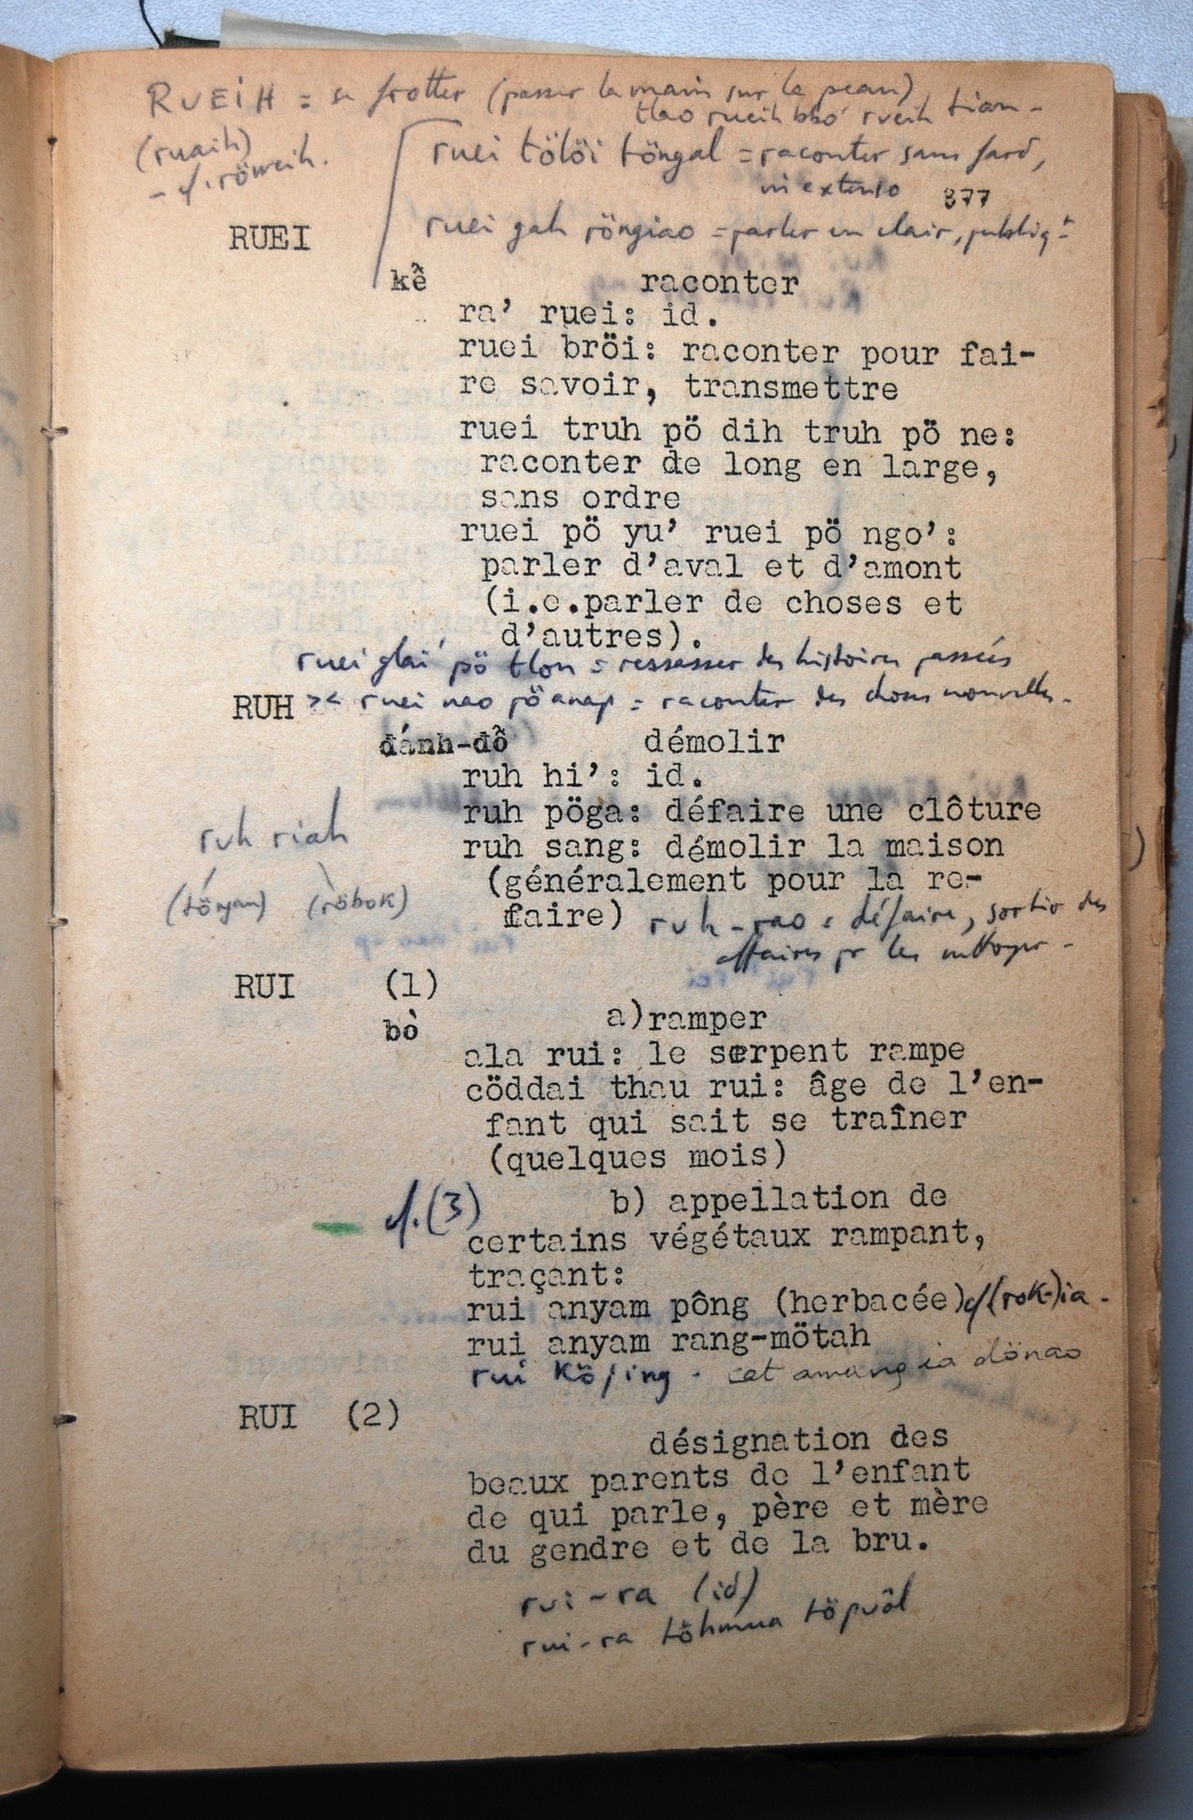 RUEIH = se frotter (passer la main sur la peau)
tlao rueih bbó rueih tian -
(ruaih)
- cf. röweih.
ruei tölöi töngal = raconter sans fard,
in extenso 377
ruei gah röngiao = parler en clair, publiqt
RUEI
kề raconter
ra’ ruei: id.
ruei bröi: raconter pour fai-
re savoir, transmettre
ruei truh pö dih truh pö ne:
raconter de long en large,
sans ordre
ruei pö yu’ ruei pö ngo’:
parler d’aval et d’amont
(i.e.parler de choses et
d’autres).
ruei glai pö tlon = ressasser des histoires passées
RUH >< ruei nao pö anap = raconter des choses nouvelles.
đánh-đổ démolir
ruh hi’: id.
ruh pöga: défaire une clôture
ruh sang: démolir la maison
(généralement pour la re-
faire) ruh-rao = défaire, sortir des
affaires pr les nettoyer -
ruh riah
(töngan) (röbok)
RUI (1)
bò a)ramper
ala rui: le serpent rampe
cöddai thau rui: âge de l’en-
fant qui sait se traîner
(quelques mois)
cf.(3) b) appellation de
certains végétaux rampant,
traçant:
rui anyam pông (herbacée)cf(rok-)ia -
rui anyam rang-mötah
rui köjing - cat amang ia dönao
RUI (2)
désignation des
beaux parents de l’enfant
de qui parle, père et mère
du gendre et de la bru.
rui-ra (id)
rui-ra töhmua töpuôl